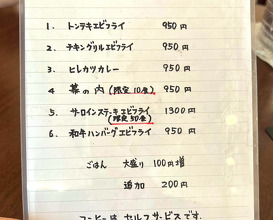 1. トンテキエビフライ 950円
2. チキングリルエビフライ 950円
3. ヒレカツカレー 950円
4 幕の内(限定10食) 950円
5. サーロインステーキエビフライ 1300円
(限定30食)
6. 和牛ハンバーグエビフライ 950円
ごはん 大盛り 100円増
追加 200円
コーヒーは セルフサービスです.